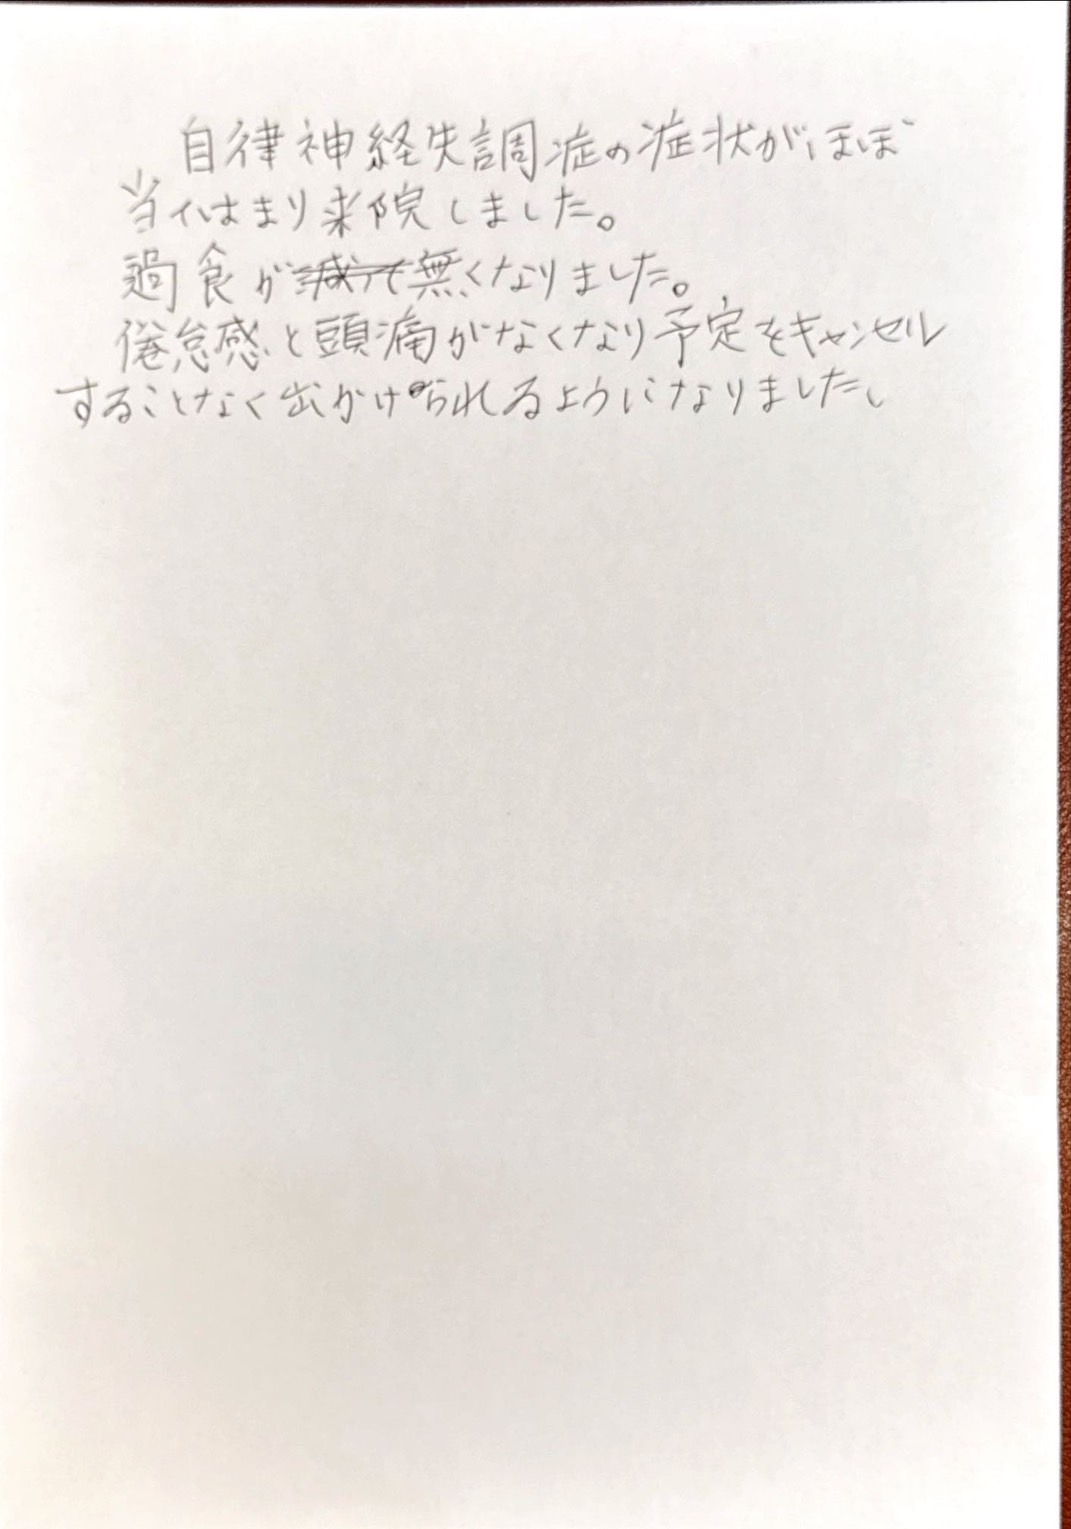 自律神経失調症の症状がほぼ
当てはまり来院しました。
過食が無くなりました。
倦怠感と頭痛がなくなり予定をキャンセル
することなく出かけられるようになりました。